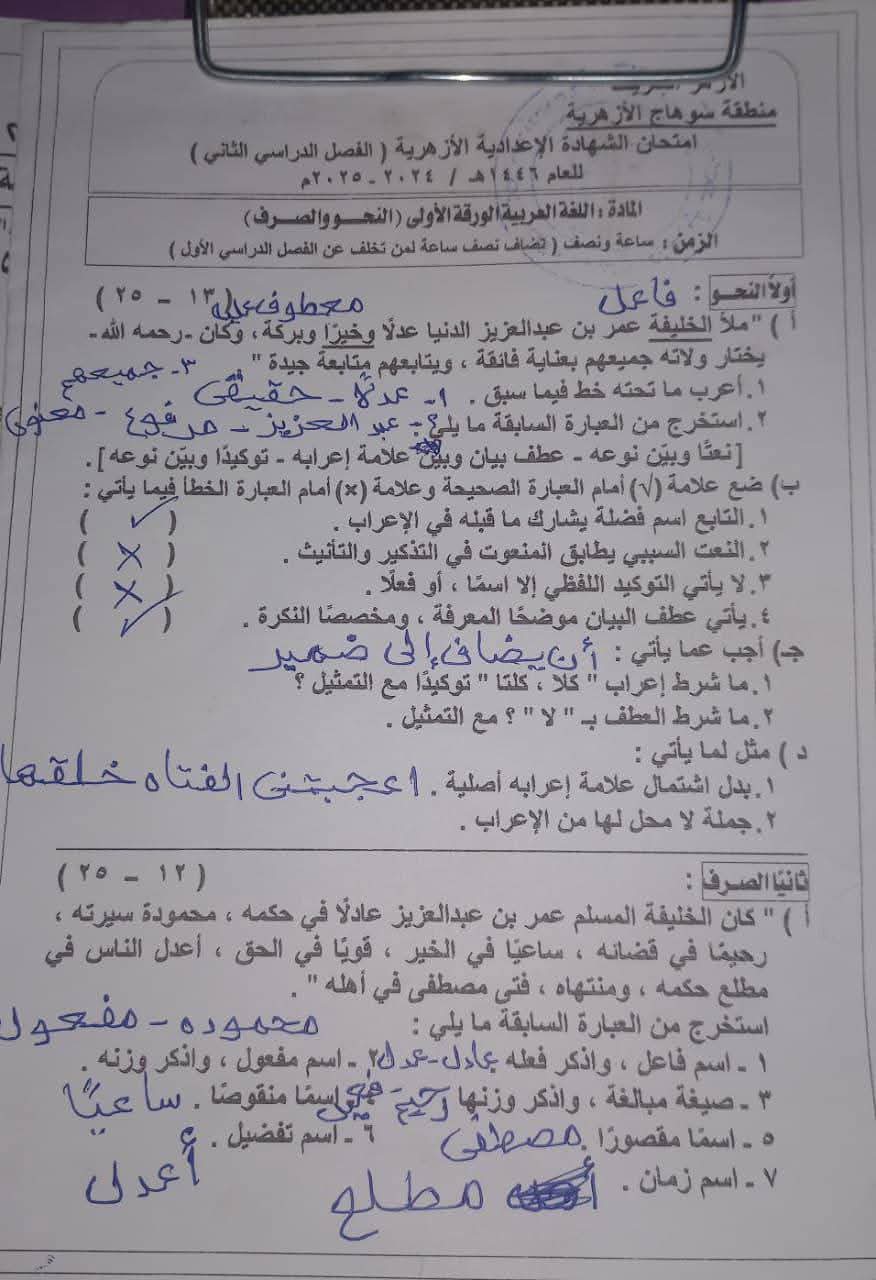 الأزهر الشريف
منطقة سوهاج الأزهرية
امتحان الشهادة الإعدادية الأزهرية ( الفصل الدراسي الثاني )
للعام ١٤٤٦هـ / ٢٠٢٤ - ٢٠٢٥م
المادة : اللغة العربية الورقة الأولى (النحو والصرف)
الزمن : ساعة ونصف ( تضاف نصف ساعة لمن تخلف عن الفصل الدراسي الأول )
أولاً النحو : فاعل معطوف عليه ( ١٣ - ٢٥ )
أ ) " ملأ الخليفة عمر بن عبدالعزيز الدنيا عدلًا وخيرًا وبركة ، وكان -رحمه الله-
يختار ولاته جميعهم بعناية فائقة ، ويتابعهم متابعة جيدة " ٣- جميعهم
١. أعرب ما تحته خط فيما سبق . ١- عدلًا - حقيقى
٢. استخرج من العبارة السابقة ما يلي : عبد العزيز - مرفوع - معنوى
[نعتًا وبيّن نوعه - عطف بيان وبيّن علامة إعرابه - توكيدًا وبيّن نوعه].
ب) ضع علامة (√) أمام العبارة الصحيحة وعلامة (×) أمام العبارة الخطأ فيما يأتي :
١. التابع اسم فضلة يشارك ما قبله في الإعراب . ( ✓ )
٢. النعت السببي يطابق المنعوت في التذكير والتأنيث . ( × )
٣. لا يأتي التوكيد اللفظي إلا اسمًا ، أو فعلًا . ( × )
٤. يأتي عطف البيان موضحًا المعرفة ، ومخصصًا النكرة . ( ✓ )
جـ) أجب عما يأتي : أن يضاف إلى ضمير
١. ما شرط إعراب " كلا ، كلتا " توكيدًا مع التمثيل ؟
٢. ما شرط العطف بـ " لا " ؟ مع التمثيل .
د ) مثل لما يأتي :
١. بدل اشتمال علامة إعرابه أصلية . اعجبتنى الفتاه خلقها
٢. جملة لا محل لها من الإعراب .
ثانيًا الصرف : ( ١٢ - ٢٥ )
أ ) " كان الخليفة المسلم عمر بن عبدالعزيز عادلًا في حكمه ، محمودة سيرته ،
رحيمًا في قضائه ، ساعيًا في الخير ، قويًا في الحق ، أعدل الناس في
مطلع حكمه ، ومنتهاه ، فتى مصطفى في أهله " .
استخرج من العبارة السابقة ما يلي : محموده - مفعول
١ - اسم فاعل ، واذكر فعله عادل - عدل ٢ - اسم مفعول ، واذكر وزنه .
٣ - صيغة مبالغة ، واذكر وزنها رحيم - اسمًا منقوصًا . ساعيًا
٥ - اسمًا مقصورًا . مصطفى ٦ - اسم تفضيل .
٧ - اسم زمان . مطلع أعدل